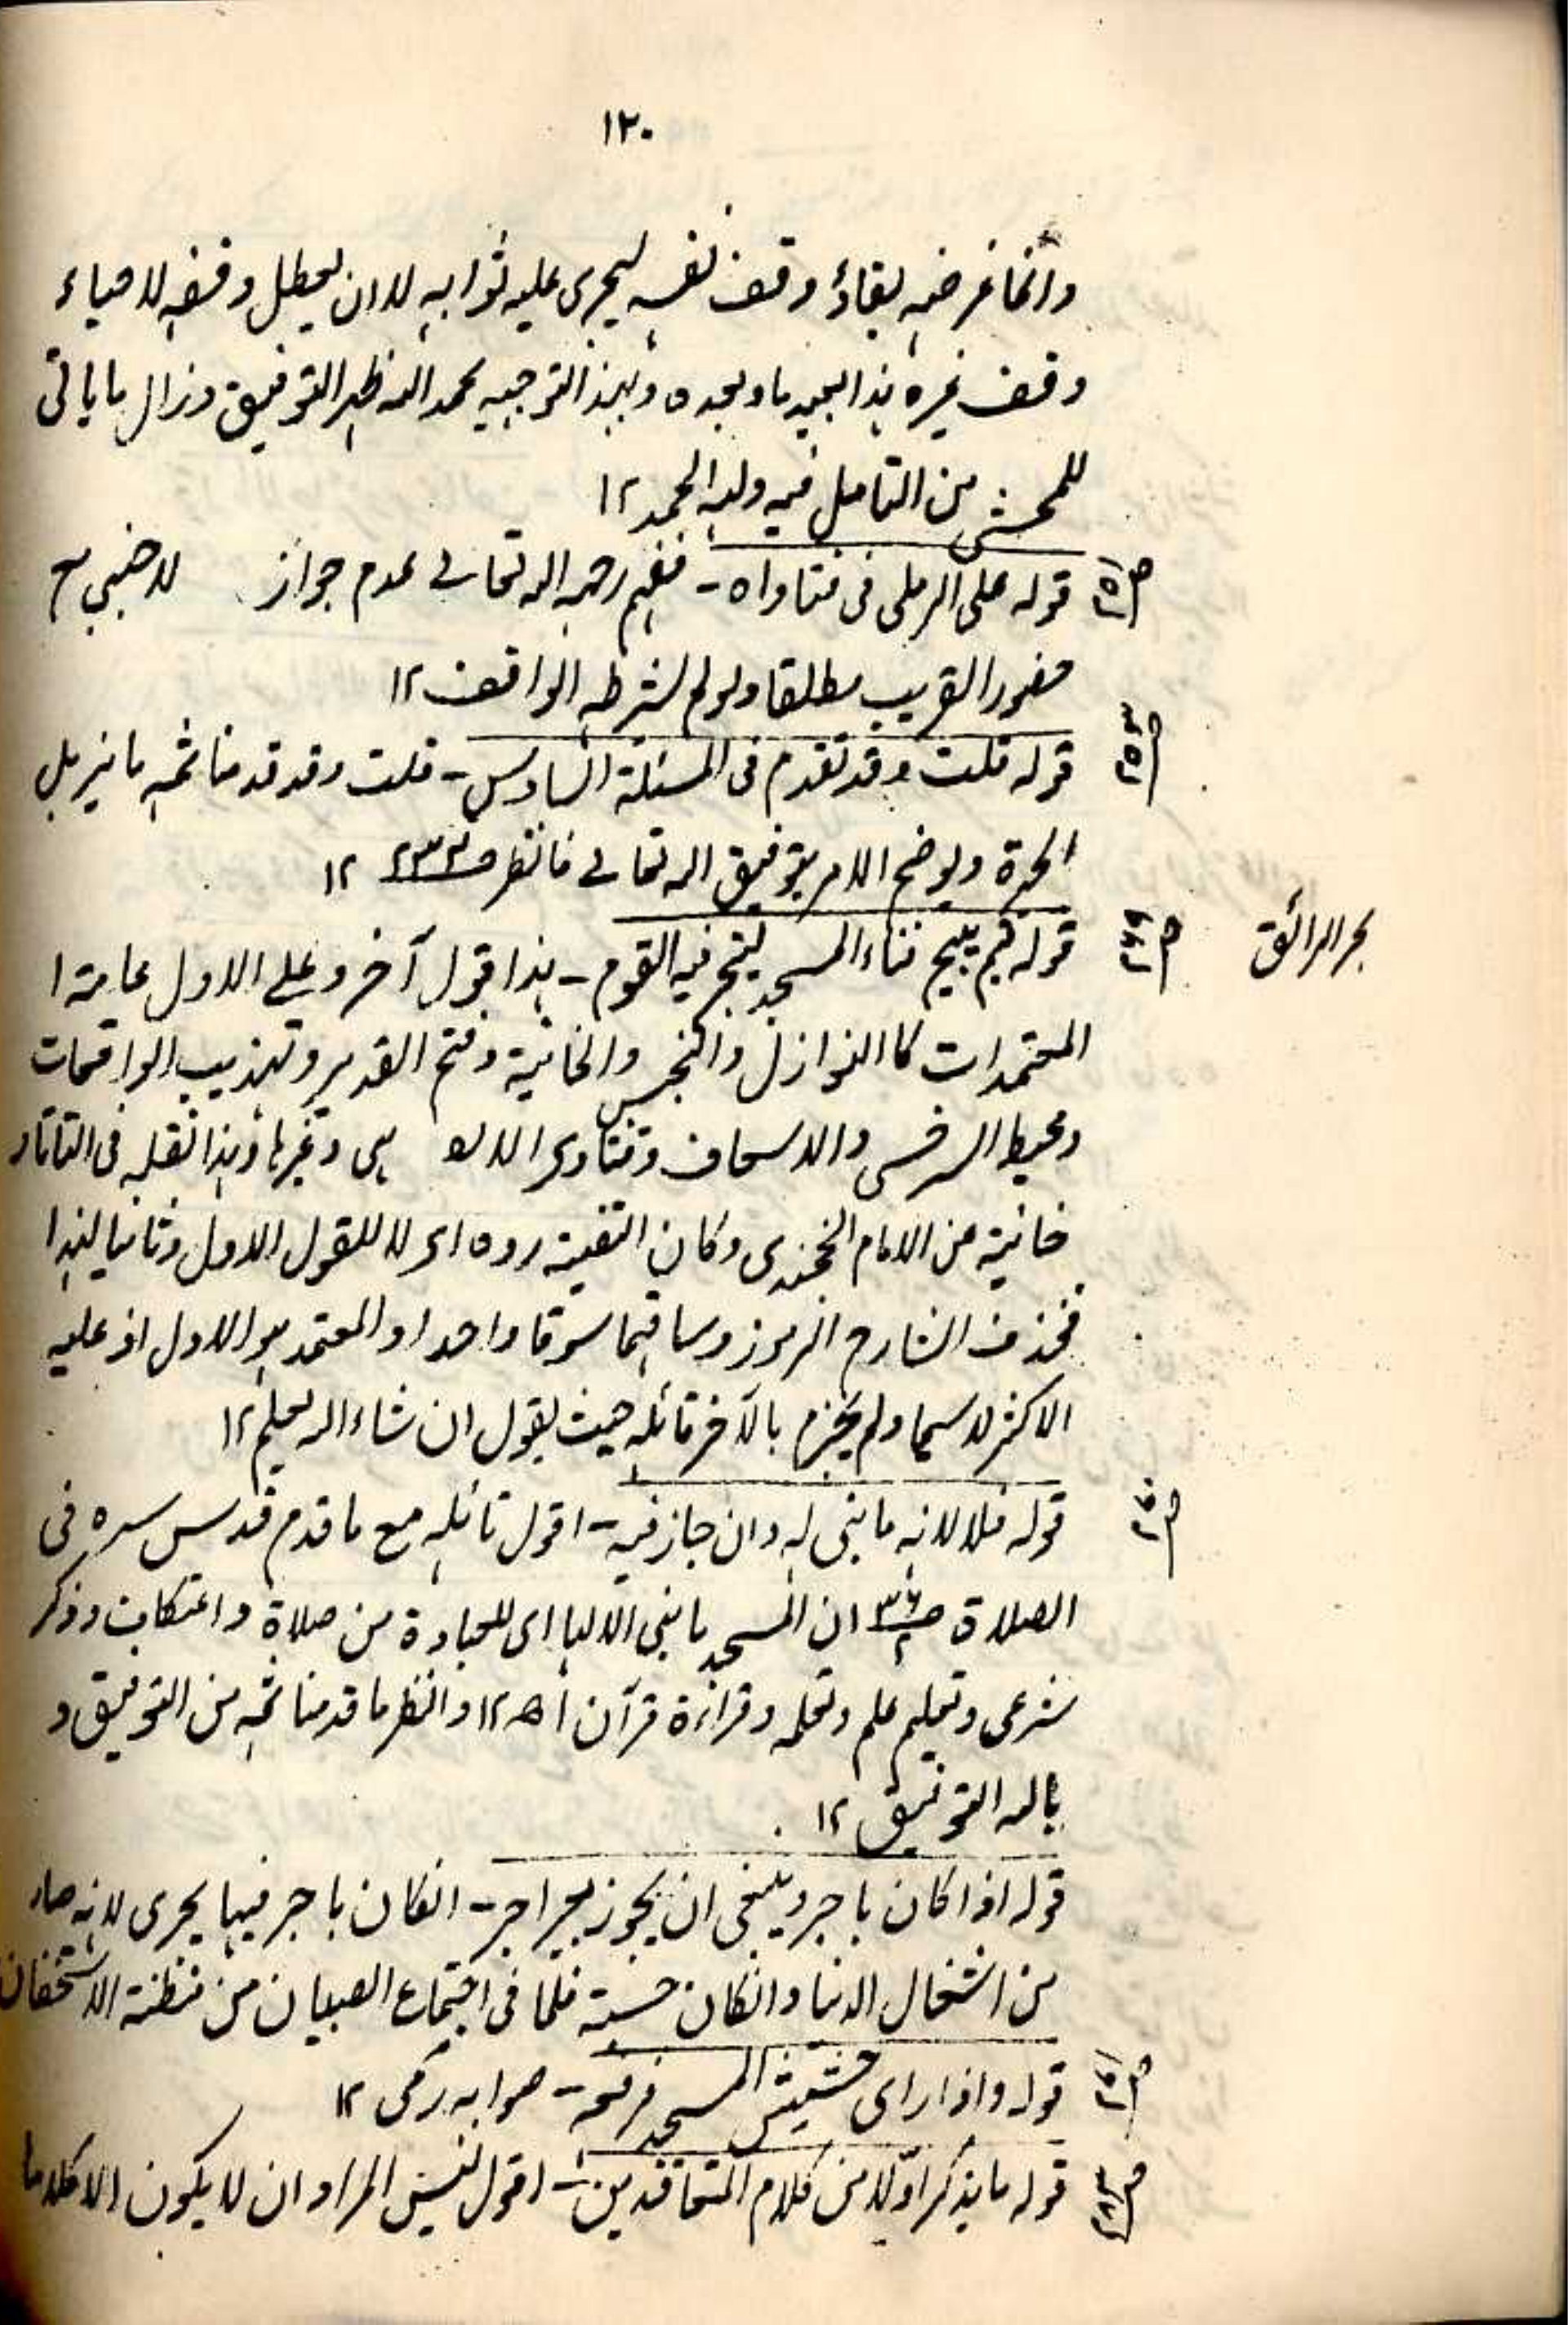 ١٢٠
وانما غرضه بقاء وقف نفسه ليجرى عليه ثوابه لا ان يعطل وقفه لاحياء
وقف غيره هذا بعيد ما وبعده وبهذا التوجيه بحمد الله ظهر التوفيق وزال ما ياتى
للمحشى من التامل فيه ولله الحمد ١٢
قوله على الرملى فى فتاواه - ففهم رحمه الله تعالى عدم جواز لاجنبى مع
حضور القريب مطلقا ولو لم يشرطه الواقف ١٢
قوله قلت وقد تقدم فى المسئلة السادس - قلت وقد قدمنا ثمه ما يزيل
الحيرة ويوضح الامر بتوفيق الله تعالى فانظر ص ١٢
بحر الرائق
قوله قيم يبيح فناء المسجد ليتجر فيه القوم - هذا قول آخر وعلى الاول عامة ا
المعتمدات كالنوازل والتجنيس والخانية وفتح القدير وتهذيب الواقعات
ومحيط السرخسى والاسعاف وفتاوى الانو هى وغيرها وهذا نقله فى التاتار
خانية عن الامام الخجندى وكان القنية روه اى لا للقول الاول وثانيا لهذا
فحذف الشارح الرموز وساقهما سوقا واحدا والمعتمد هو الاول اذ عليه
الاكثر لاسيما ولم يجزم بالآخر قائله حيث يقول ان شاء الله يعلم ١٢
قوله فلا لانه ما بنى له وان جاز فيه - اقول تأمله مع ما قدم قدس سره فى
الصلاة ص ان المسجد ما بنى الا لها اى للعبادة من صلاة واعتكاف وذكر
شرعى وتعليم علم وتعلمه وقراءة قرآن اھ ١٢ وانظر ما قدمنا ثمه من التوفيق و
بالله التوفيق ١٢
قوله اذا كان باجر وينبغى ان يجوز بغير اجر - انكان باجر فيها يجرى لانه صار
من اشغال الدنيا وانكان حسبة فلما فى اجتماع الصبيان من مظنة الاستخفاف
قوله واذا راى حشيش المسجد فرفعه - صوابه رمى ١٢
قوله ما يذكر اولا من كلام المتعاقدين - اقول ليس المراد ان لا يكون الا كلاما